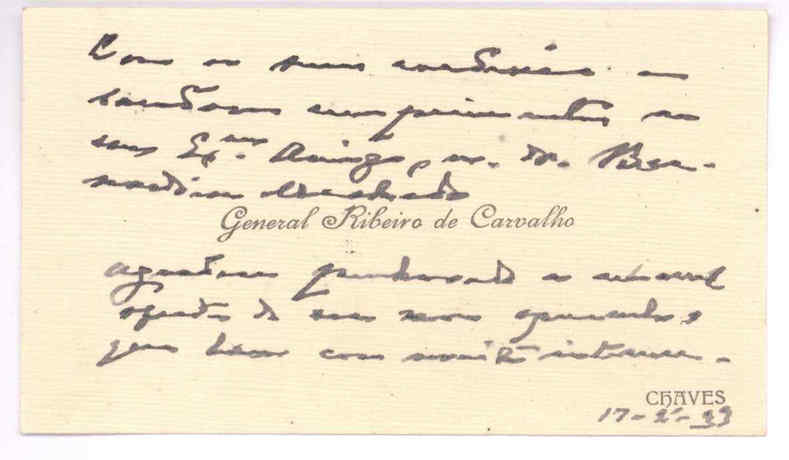 Com os seus cordiais e
saudosos cumprimentos ao
seu Ex.mo Amigo, sr. dr. Ber-
nardino Machado
General Ribeiro de Carvalho
agradece penhorado a
oferta do seu novo opusculo,
que leu com muito interesse.
CHAVES
17-2-33